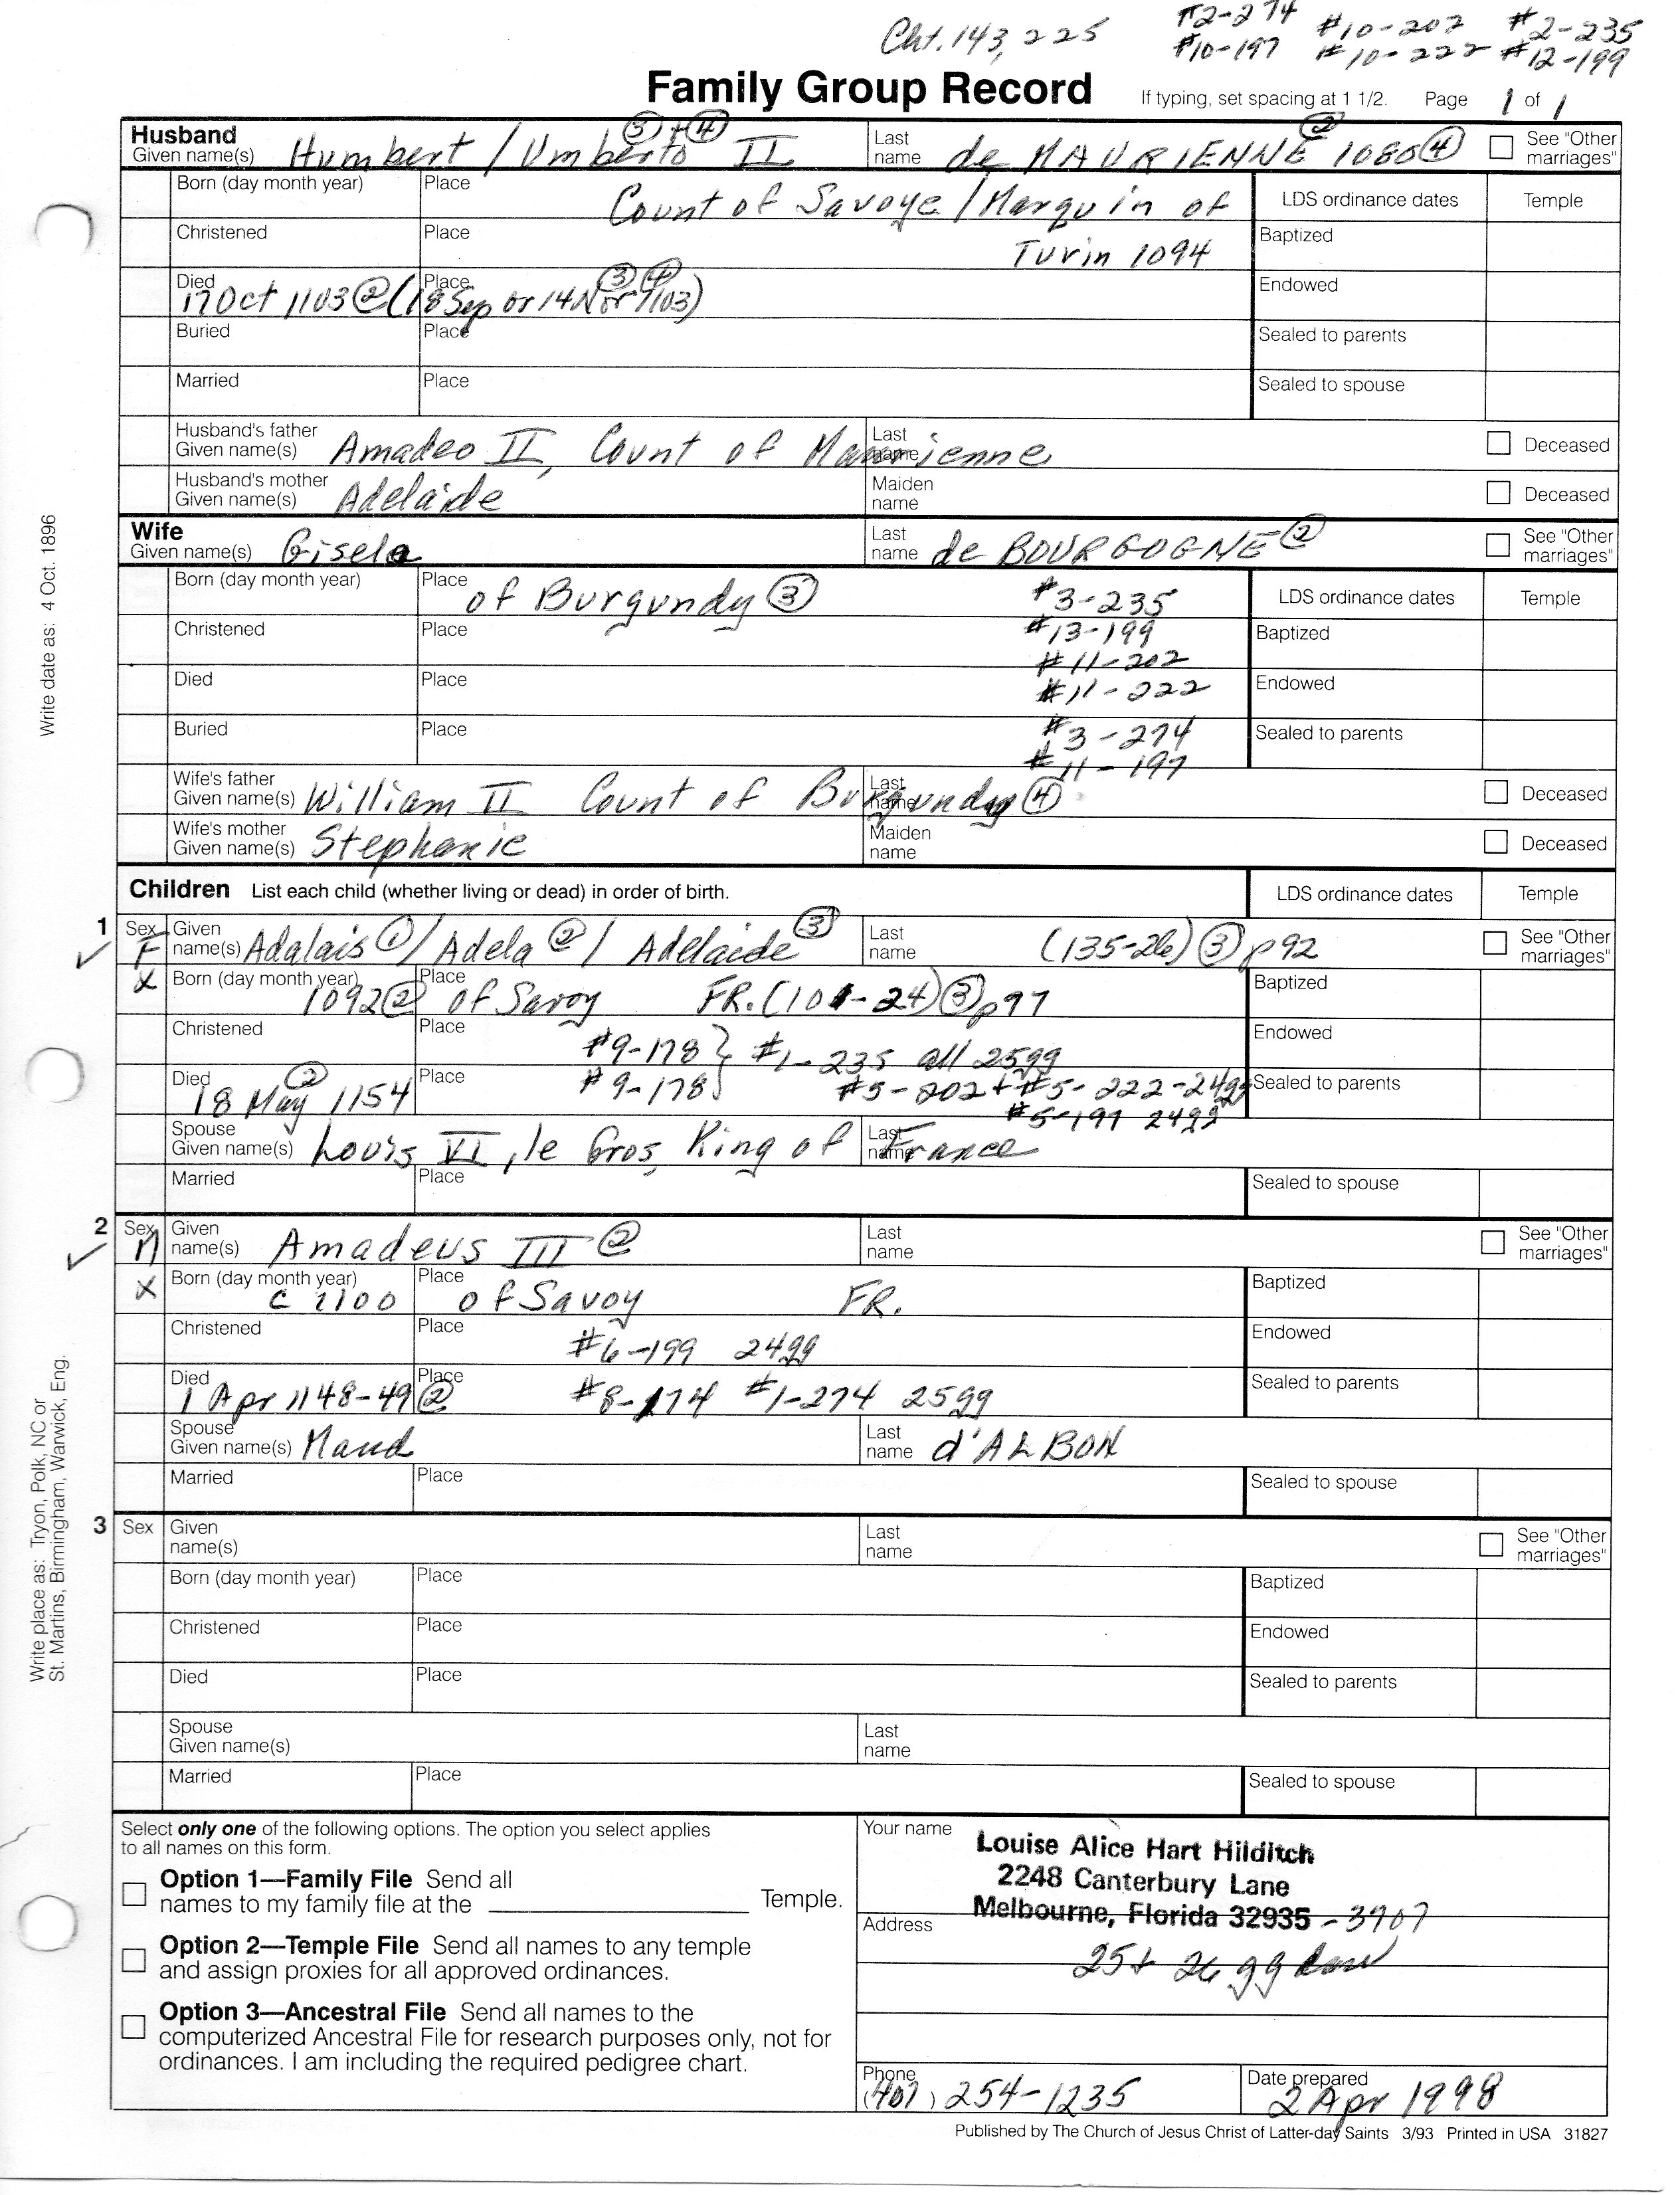 Cht. 143, 225 #2-274 #10-202 #2-235
#10-197 #10-222 #12-199
Family Group Record If typing, set spacing at 1 1/2. Page 1 of 1
Husband
Given name(s) Humbert / Umberto ③+④ II Last name de MAURIENNE ② 1080 ④ See "Other marriages"
Born (day month year) Place Count of Savoye / Marquin of LDS ordinance dates Temple
Christened Place Turin 1094 Baptized
Died 17 Oct 1103 ② Place (18 Sep or 14 Nor 1103) ③ ④ Endowed
Buried Place Sealed to parents
Married Place Sealed to spouse
Husband's father
Given name(s) Amadeo II, Count of Maurienne Last name Deceased
Husband's mother
Given name(s) Adelaide Maiden name Deceased
Wife
Given name(s) Gisela Last name de BOURGOGNE ② See "Other marriages"
Born (day month year) Place of Burgundy ③ #3-235 LDS ordinance dates Temple
Christened Place #13-199 Baptized
#11-202
Died Place #11-222 Endowed
Buried Place #3-274 Sealed to parents
#11-197
Wife's father
Given name(s) William II Count of Burgundy ④ Last name Deceased
Wife's mother
Given name(s) Stephanie Maiden name Deceased
Children List each child (whether living or dead) in order of birth. LDS ordinance dates Temple
1 Sex F Given name(s) Adalais ① / Adela ② / Adelaide ③ Last name (135-26) ③ p92 See "Other marriages"
X Born (day month year) 1092 ② Place of Savoy FR. (101-24) ③ p97 Baptized
Christened Place #9-178 } #1-235 all 25gg Endowed
Died 18 May ② 1154 Place #9-178 } #5-202 + #5-222-24gg Sealed to parents
#5-197 24gg
Spouse
Given name(s) Louis VI, le Gros, King of France Last name
Married Place Sealed to spouse
2 Sex M Given name(s) Amadeus III ② Last name See "Other marriages"
X Born (day month year) c 1100 Place of Savoy FR. Baptized
Christened Place #6-199 24gg Endowed
Died 1 Apr 1148-49 ② Place #8-174 #1-274 25gg Sealed to parents
Spouse
Given name(s) Maud Last name d'ALBON
Married Place Sealed to spouse
3 Sex Given name(s) Last name See "Other marriages"
Born (day month year) Place Baptized
Christened Place Endowed
Died Place Sealed to parents
Spouse
Given name(s) Last name
Married Place Sealed to spouse
Write date as: 4 Oct. 1896
Write place as: Tryon, Polk, NC or
St. Martins, Birmingham, Warwick, Eng.
Select only one of the following options. The option you select applies
to all names on this form.
Option 1—Family File Send all
names to my family file at the Temple.
Option 2—Temple File Send all names to any temple
and assign proxies for all approved ordinances.
Option 3—Ancestral File Send all names to the
computerized Ancestral File for research purposes only, not for
ordinances. I am including the required pedigree chart.
Your name Louise Alice Hart Hilditch
2248 Canterbury Lane
Address Melbourne, Florida 32935-3707
25+ 26 gg
Phone (407) 254-1235 Date prepared 2 Apr 1998
Published by The Church of Jesus Christ of Latter-day Saints 3/93 Printed in USA 31827